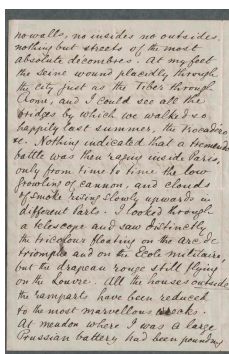 no walls, no insides no outsides,
nothing but streets of the most
absolute decombres. At my feet
the Seine wound placidly through
the city just as the Tiber through
Rome, and I could see all the
bridges by which we walked so
happily last summer, the Trocadero
&c. Nothing indicated that a tremendous
battle was then raging inside Paris,
only from time to time the low
growling of cannon, and clouds
of smoke rising slowly upwards in
different parts. I looked through
a telescope and saw distinctly
the tricolour floating on the arc de
triomphe and on the Ecole militaire,
but the drapeau rouge still flying
on the Louvre. All the houses outside
the ramparts have been reduced
to the most marvellous
At meudon where I was a large
Prussian battery had been pounding